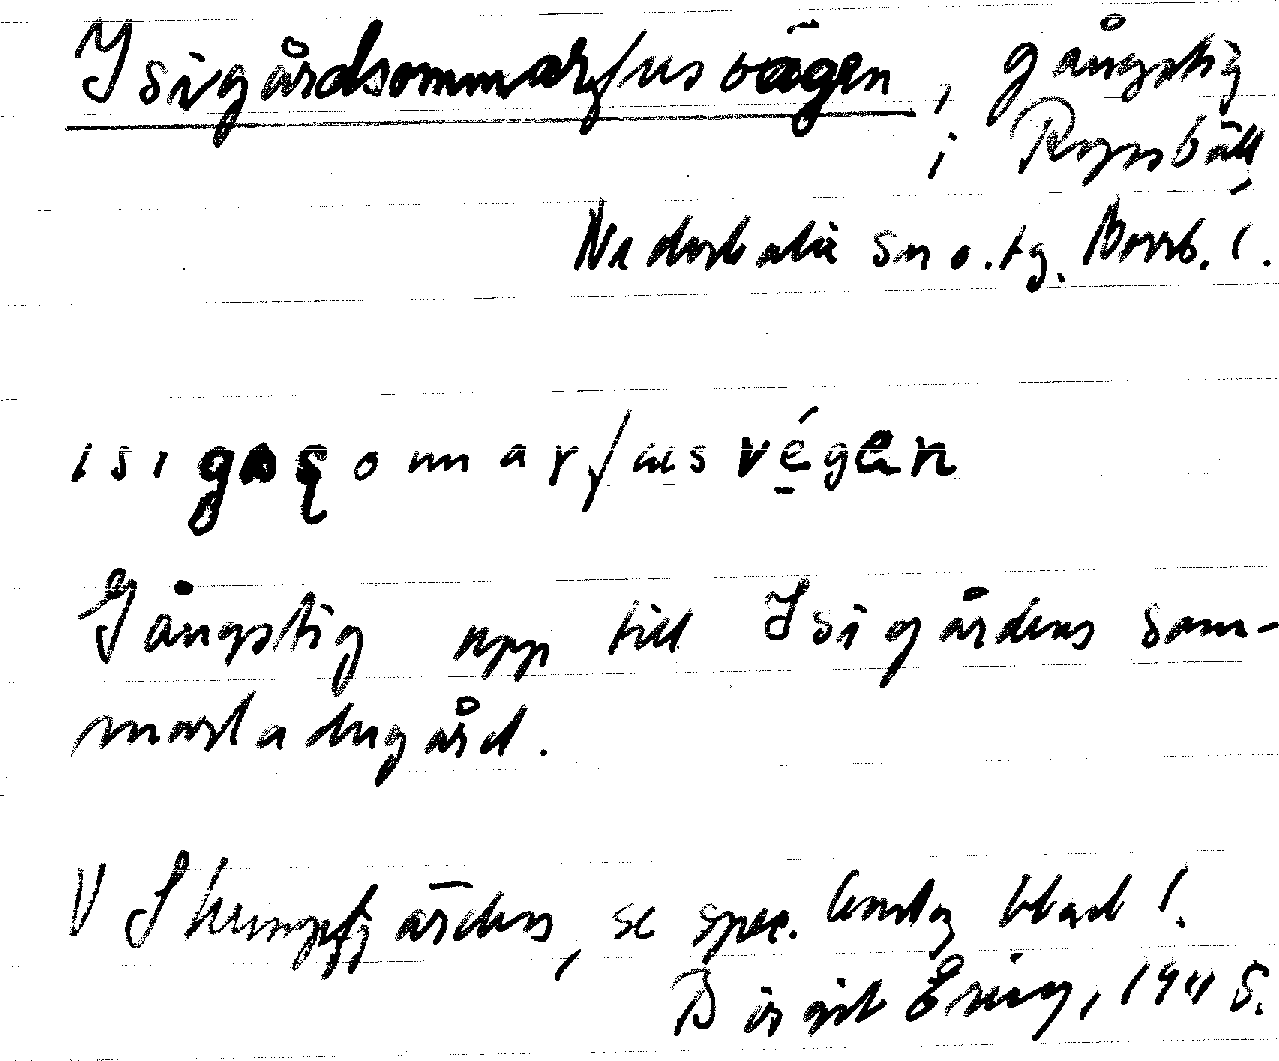 Isigårdsommarfusvägen, gångstig
i Rynsbäll,
Nederkalix sn o. tg. Norrb. l.
isigaşomarfusvégen
Gångstig upp till Isigårdens som-
markadugård.
V fjärden, se spec. bl. 1.
Birgit Ering, 1945.